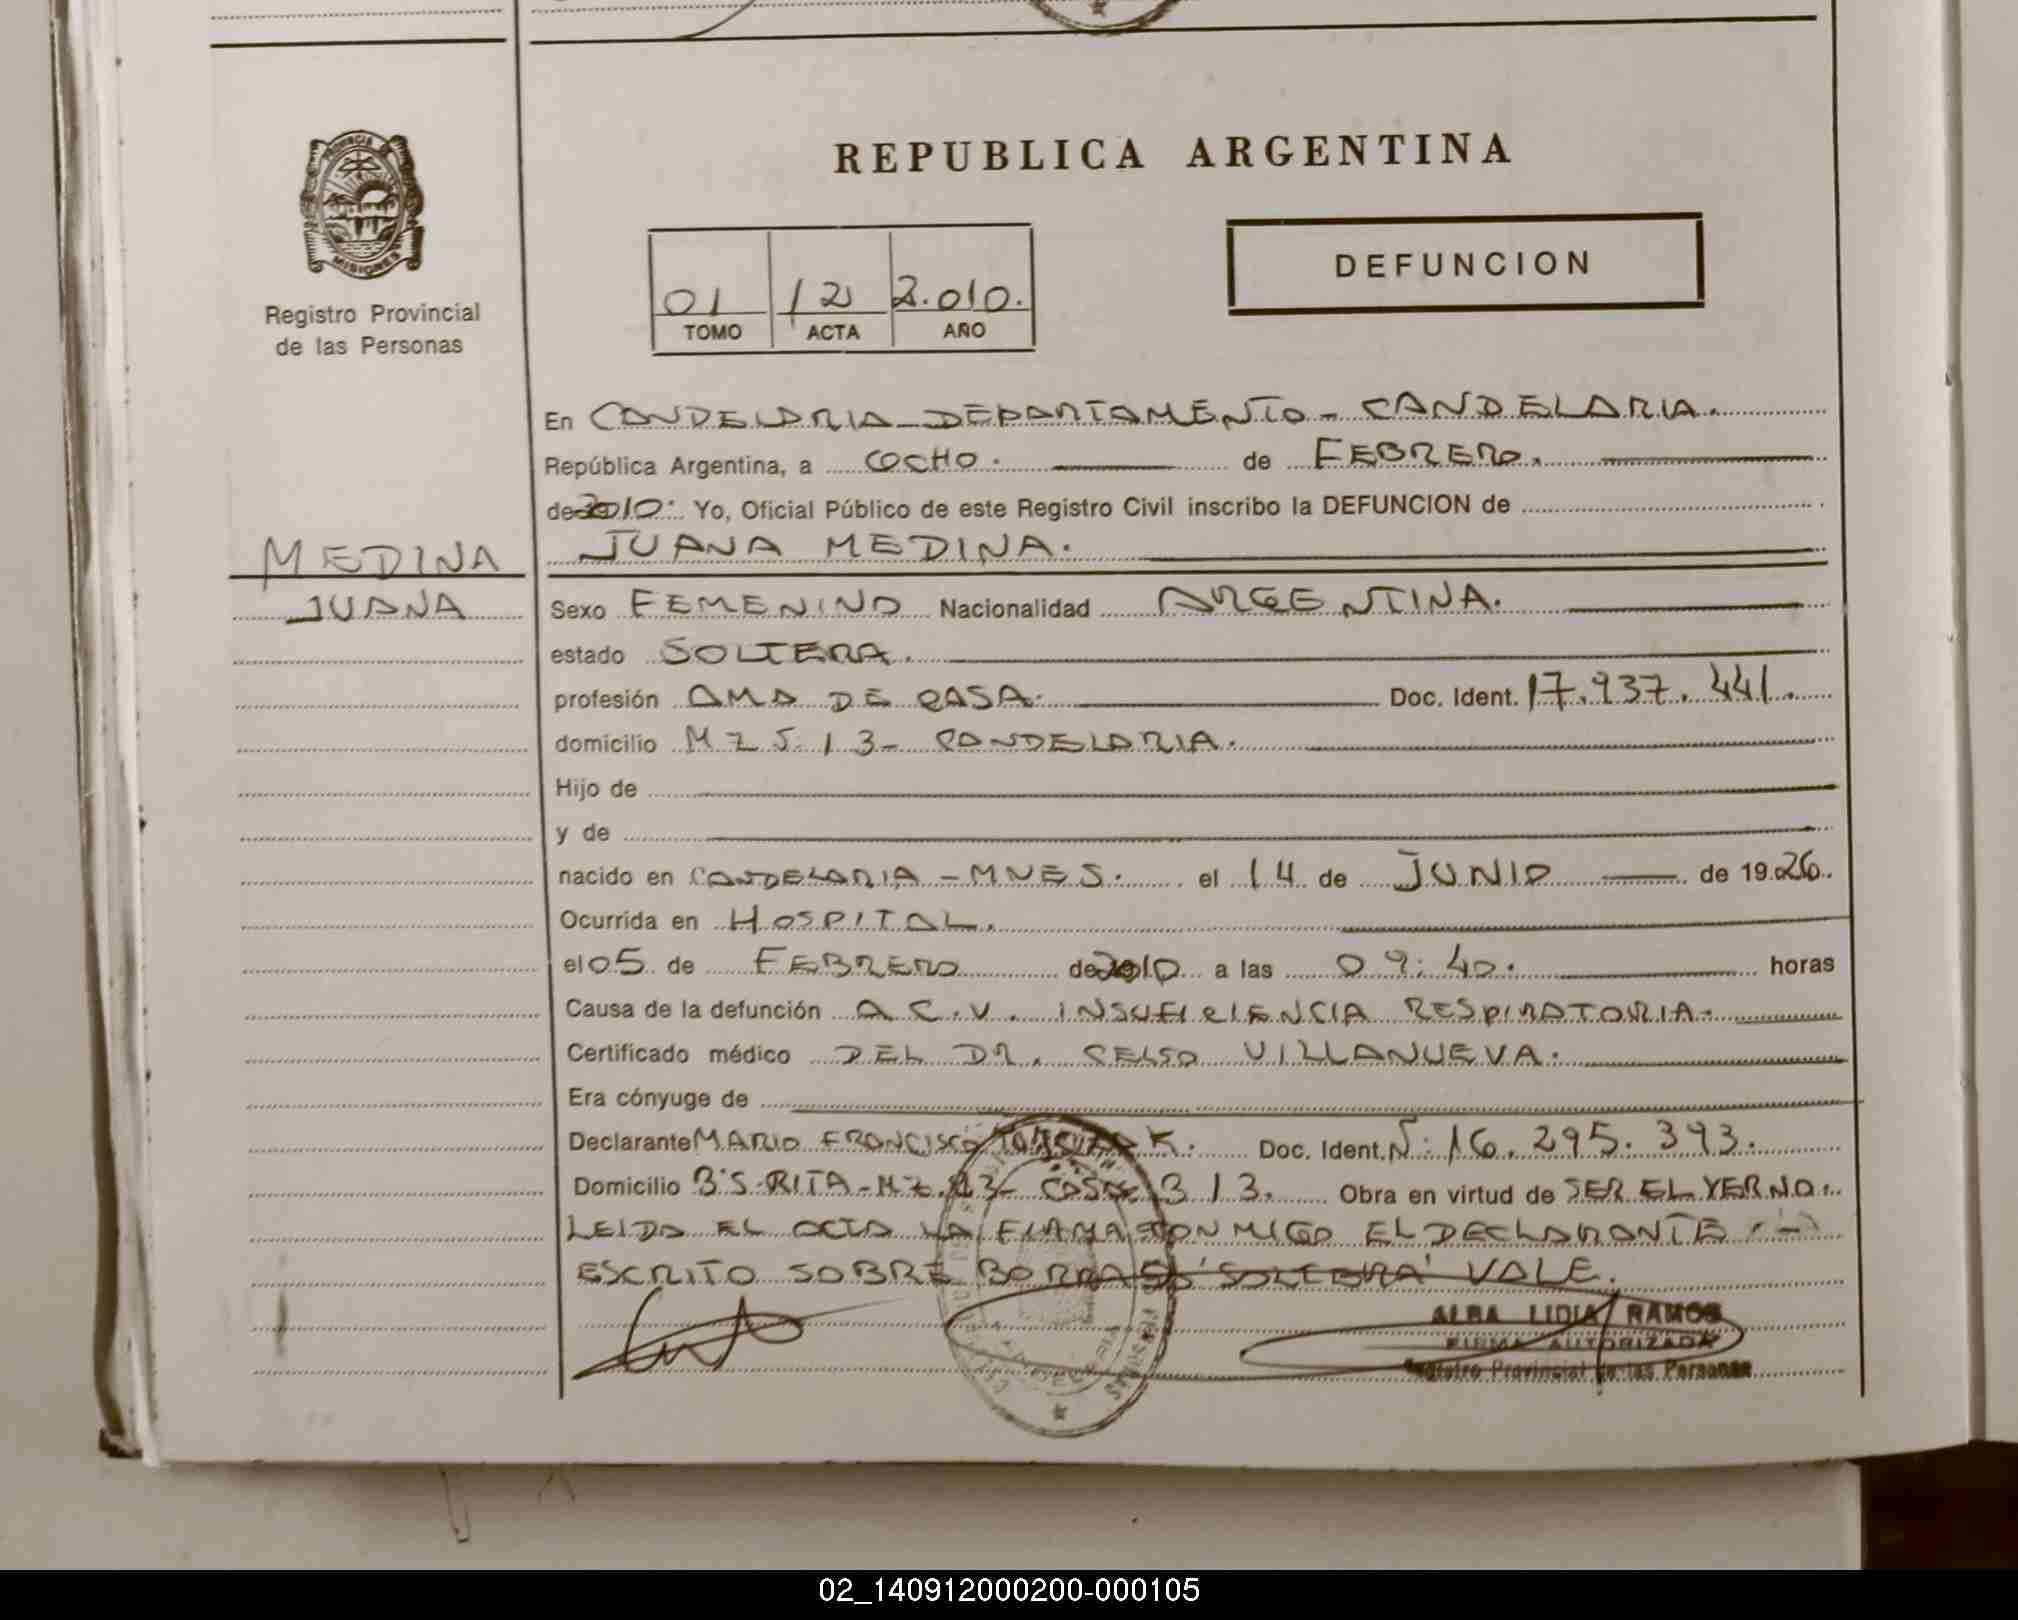 PROVINCIA DE
MISIONES
Registro Provincial
de las Personas
REPUBLICA ARGENTINA
01 12 2.010.
TOMO ACTA AÑO
DEFUNCION
En CANDELARIA DEPARTAMENTO - CANDELARIA.
República Argentina, a OCHO. de FEBRERO.
de 2010. Yo, Oficial Público de este Registro Civil inscribo la DEFUNCION de
JUANA MEDINA.
MEDINA
JUANA
Sexo FEMENINO Nacionalidad ARGENTINA.
estado SOLTERA.
profesión AMA DE CASA. Doc. Ident. 17.937.441.
domicilio MZ S. 13- CANDELARIA.
Hijo de
y de
nacido en CANDELARIA - MNES. el 14 de JUNIO de 1926.
Ocurrida en HOSPITAL.
el 05 de FEBRERO de 2010 a las 09:40. horas
Causa de la defunción A.C.V. INSUFICIENCIA RESPIRATORIA.
Certificado médico DEL DR. CELSO VILLANUEVA.
Era cónyuge de
Declarante MARIO FRANCISCO Doc. Ident. N: 16.295.393.
Domicilio B: S. RITA - MZ. 13- CASA 313. Obra en virtud de SER EL YERNO.
LEIDA EL ACTA LA FIRMA CONMIGO EL DECLARANTE. -
ESCRITO SOBRE BORRADO 'SOLTERA' VALE.
ALBA LIDIA RAMOS
FIRMA AUTORIZADA
Registro Provincial de las Personas
02_140912000200-000105